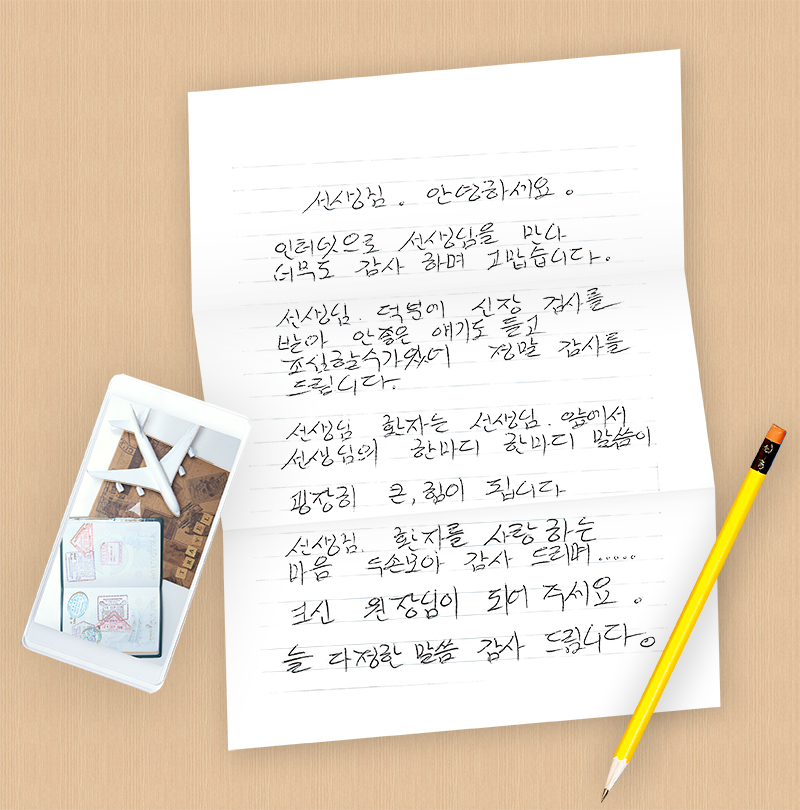 선생님. 안녕하세요.
인터넷으로 선생님을 만나
너무도 감사 하며 고맙습니다.
선생님. 덕분에 신장 검사를
받아 안좋은 얘기도 듣고
조심할수가있어 정말 감사를
드립니다.
선생님 환자는 선생님. 앞에서
선생님의 한마디 한마디 말씀이
굉장히 큰, 힘이 됩니다
선생님. 환자를 사랑하는
마음 두손모아 감사 드리며.....
크신 원장님이 되어 주세요.
늘 다정한 말씀 감사 드립니다.